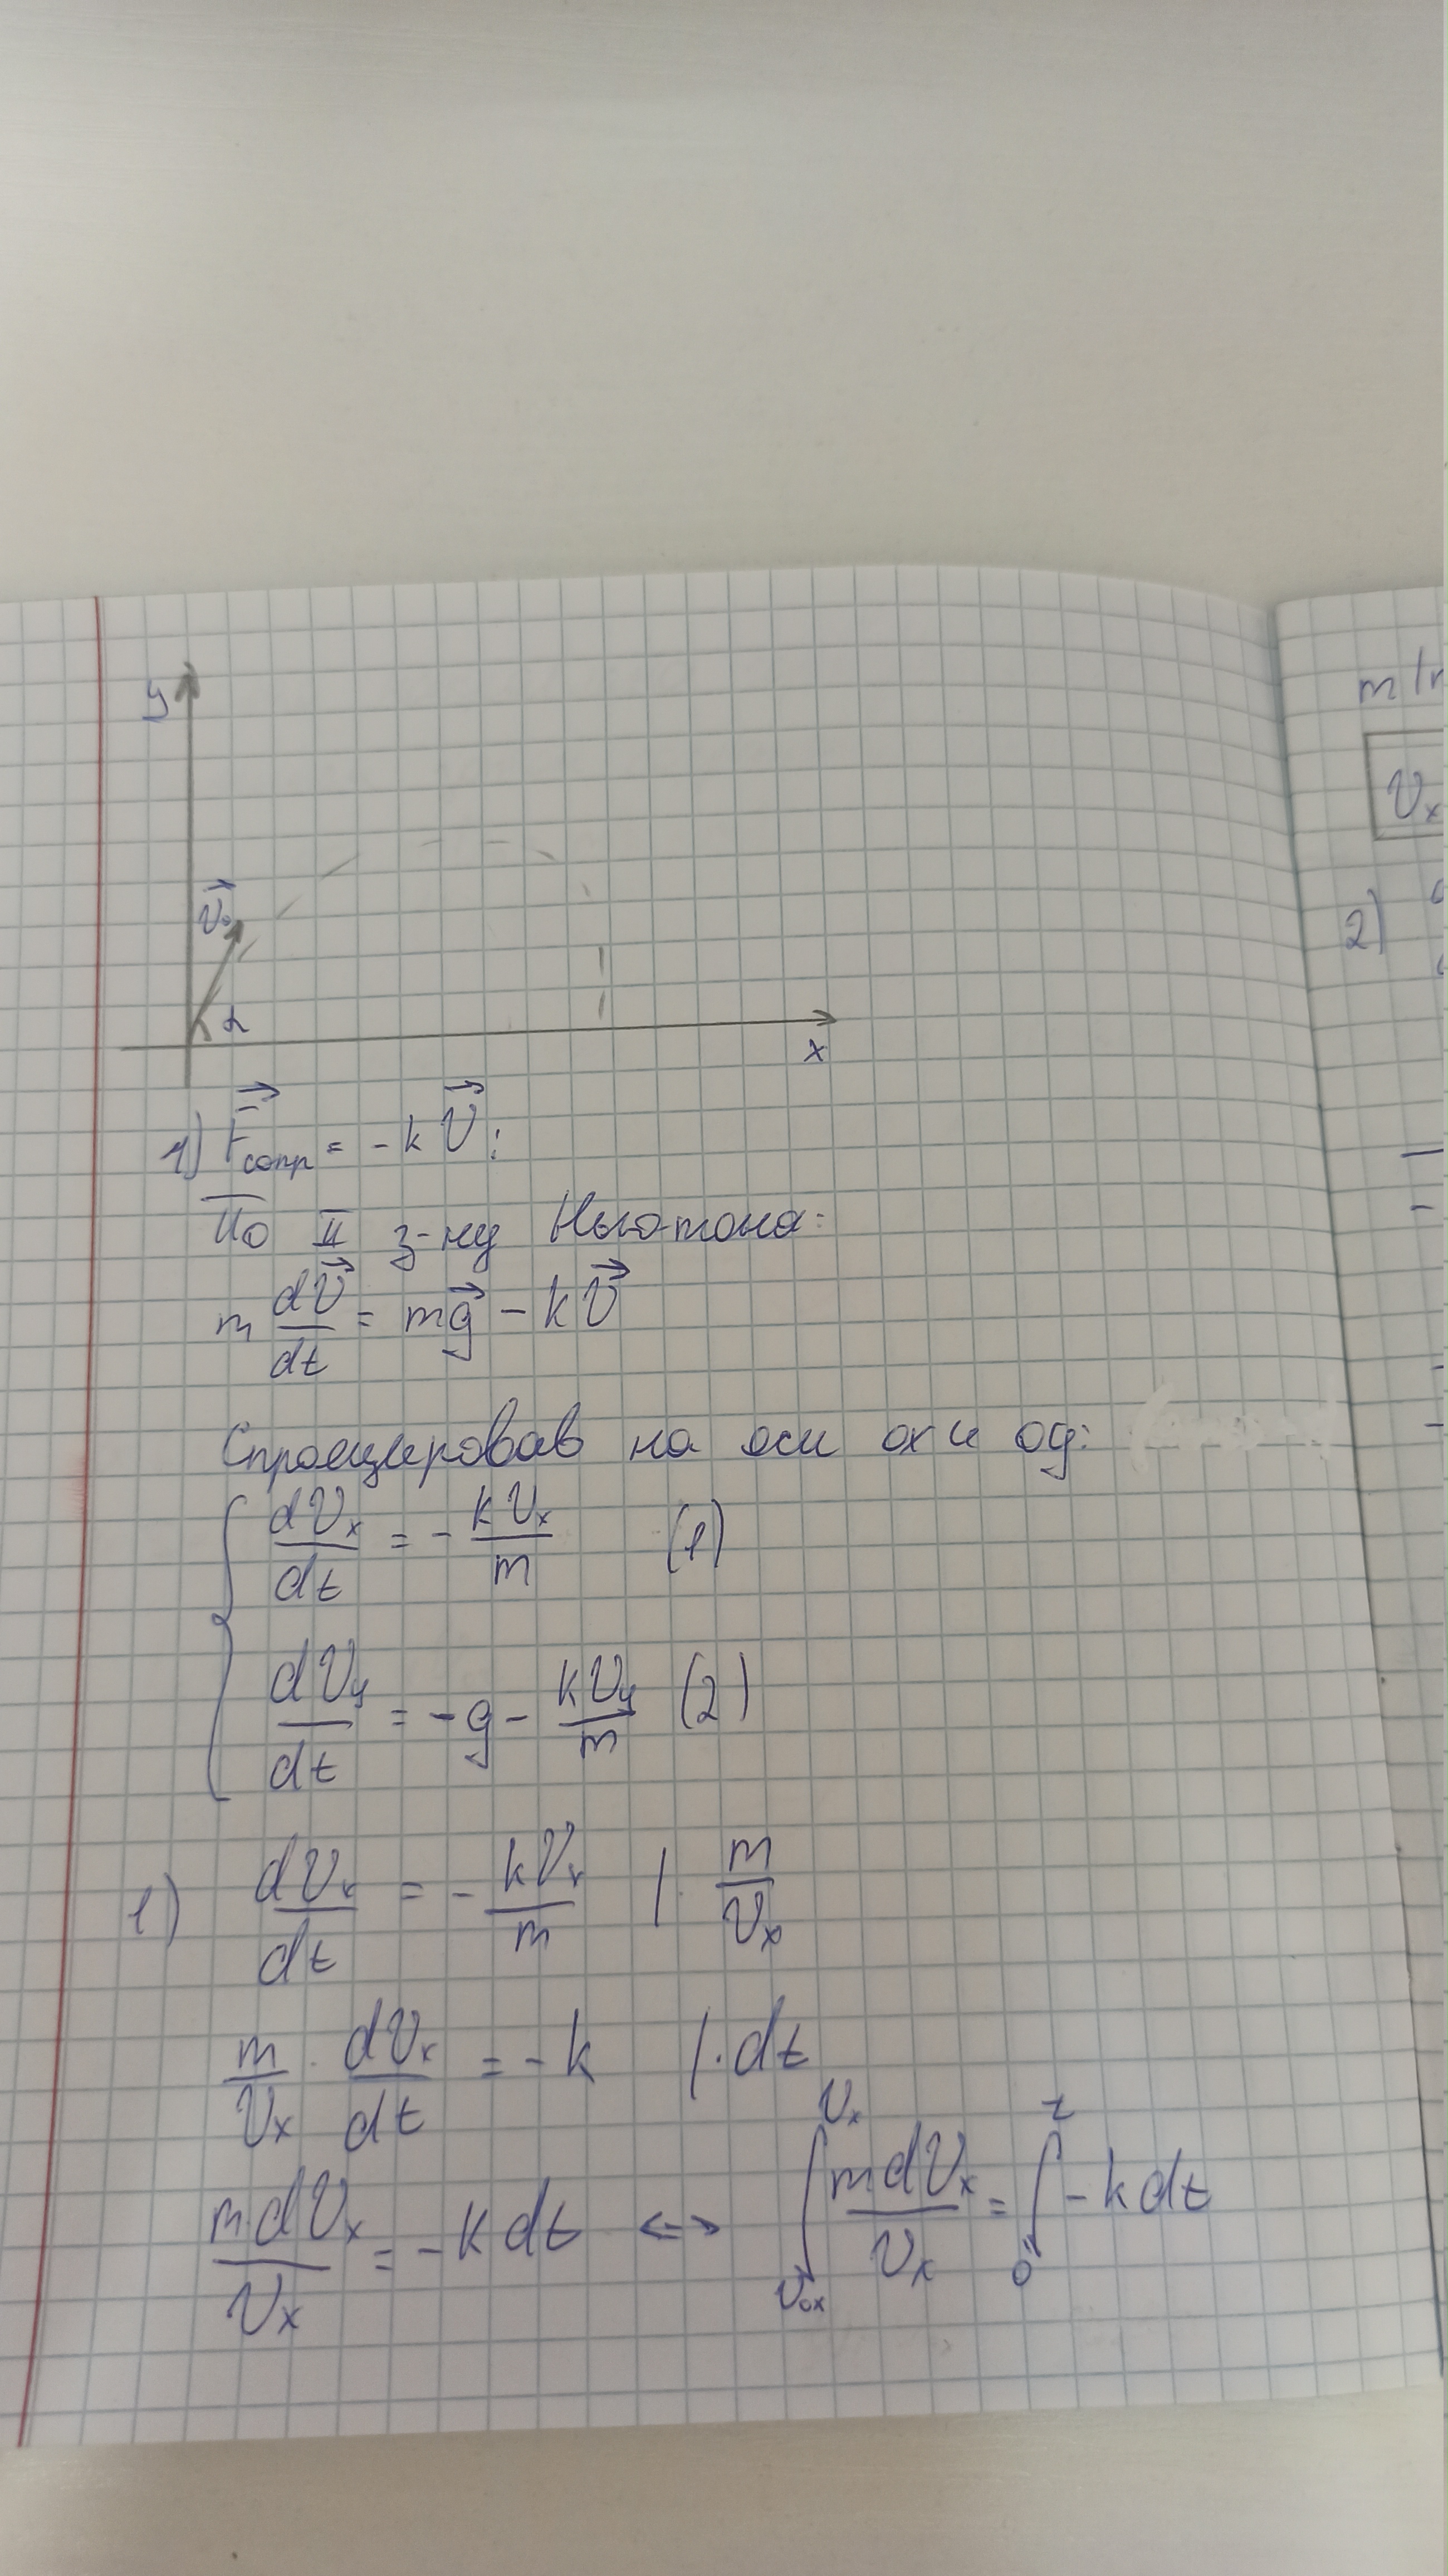 y
v₀
α
x
1) Fсопр = -kV:
По II з-ну Ньютона:
m dV/dt = mg - kV
Спроецировав на оси ox и oy:
dVx/dt = - kVx/m (1)
dVy/dt = -g - kVy/m (2)
1) dVx/dt = - kVx/m | · m/Vx
m/Vx · dVx/dt = -k | · dt
m dVx/Vx = -k dt <-> ∫_{V₀x}^{Vx} m dVx/Vx = ∫_0^t -k dt
m
Vx
2)